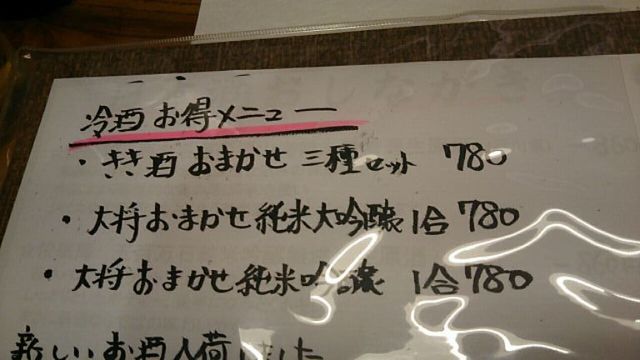 冷酒お得メニュー
・きき酒おまかせ三種セット 780
・大将おまかせ純米大吟醸1合780
・大将おまかせ純米吟醸 1合780
新しいお酒入荷しました